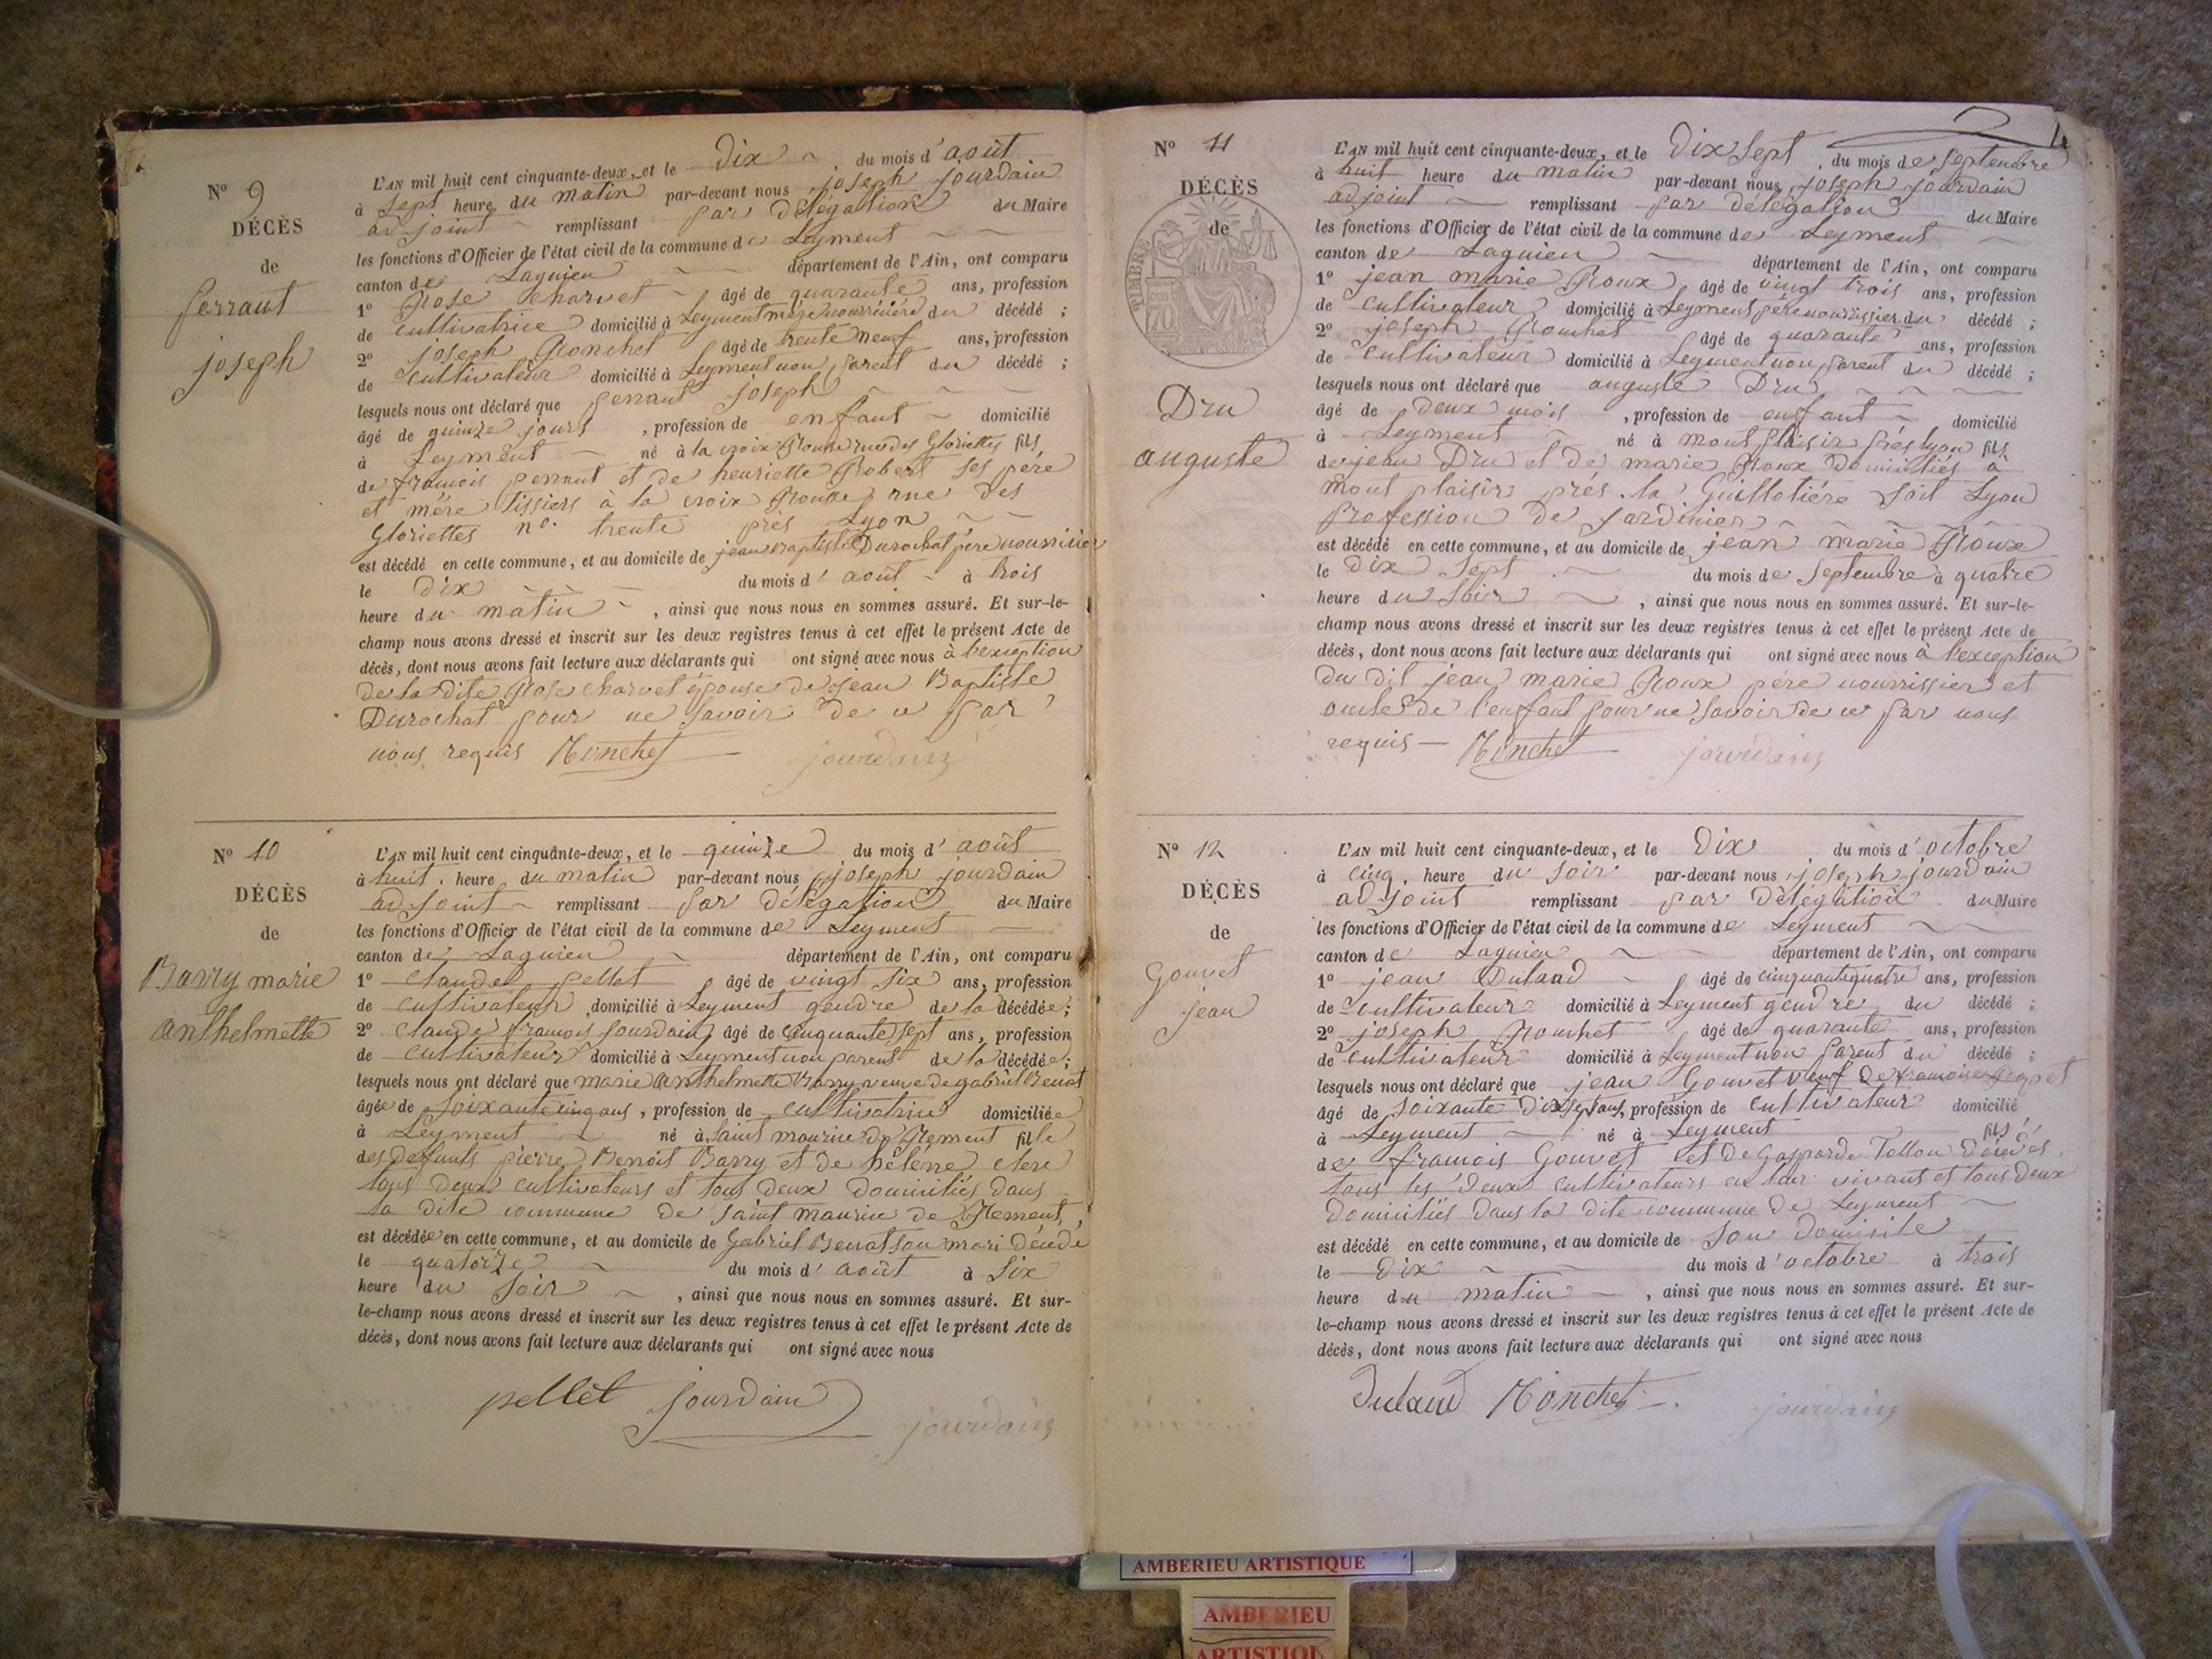 N° 9
DÉCÈS
de
perraut
joseph
L'AN mil huit cent cinquante-deux, et le dix du mois d'août
à sept heure du matin par-devant nous joseph jourdain
adjoint remplissant par délégation du Maire
les fonctions d'Officier de l'état civil de la commune de Leyment
canton de Lagnieu département de l'Ain, ont comparu
1° Rose charvet âgé de quarante ans, profession
de cultivatrice domicilié à Leyment mère nourricière du décédé ;
2° joseph Ronchet âgé de trente neuf ans, profession
de cultivateur domicilié à Leyment non parent du décédé ;
lesquels nous ont déclaré que perraut joseph
âgé de quinze jours , profession de enfant domicilié
à Leyment né à la croix Rousse rue des Gloriettes fils
de françois perraut et de henriette Robert ses père
et mère tissiers à la croix Rousse rue des
Gloriettes n°. trente près Lyon
est décédé en cette commune, et au domicile de jean Baptiste Durochat père nourricier
le dix du mois d'août à trois
heure du matin , ainsi que nous nous en sommes assuré. Et sur-le-
champ nous avons dressé et inscrit sur les deux registres tenus à cet effet le présent Acte de
décès, dont nous avons fait lecture aux déclarants qui ont signé avec nous à l'exception
de la dite Rose charvet épouse de jean Baptiste
Durochat pour ne savoir de ce par
nous requis Ronchet jourdain
N° 10
DÉCÈS
de
Barry marie
anthelmette
L'AN mil huit cent cinquante-deux, et le quinze du mois d'août
à huit heure du matin par-devant nous joseph jourdain
adjoint remplissant par délégation du Maire
les fonctions d'Officier de l'état civil de la commune de Leyment
canton de Lagnieu département de l'Ain, ont comparu
1° claude pellet âgé de vingt six ans, profession
de cultivateur domicilié à Leyment gendre de la décédée ;
2° claude françois jourdain âgé de cinquante sept ans, profession
de cultivateur domicilié à Leyment non parent de la décédée ;
lesquels nous ont déclaré que marie anthelmette Barry veuve de gabriel
âgée de soixante cinq ans , profession de cultivatrice domiciliée
à Leyment né à saint maurice de Rement fille
des défunts pierre Benoît Barry et de hélène clere
tous deux cultivateurs et tous deux domiciliés dans
la dite commune de saint maurice de Rement,
est décédée en cette commune, et au domicile de Gabriel son mari décédé
le quatorze du mois d'août à six
heure du soir , ainsi que nous nous en sommes assuré. Et sur-
le-champ nous avons dressé et inscrit sur les deux registres tenus à cet effet le présent Acte de
décès, dont nous avons fait lecture aux déclarants qui ont signé avec nous
pellet jourdain
jourdain
N° 11
DÉCÈS
de
TIMBRE
Dru
auguste
L'AN mil huit cent cinquante-deux, et le dix sept du mois de septembre
à huit heure du matin par-devant nous joseph jourdain
adjoint remplissant par délégation du Maire
les fonctions d'Officier de l'état civil de la commune de Leyment
canton de Lagnieu département de l'Ain, ont comparu
1° jean marie Roux âgé de vingt trois ans, profession
de cultivateur domicilié à Leyment père nourrissier du décédé ;
2° joseph Ronchet âgé de quarante ans, profession
de cultivateur domicilié à Leyment non parent du décédé ;
lesquels nous ont déclaré que auguste Dru
âgé de deux mois , profession de enfant domicilié
à Leyment né à mont plaisir près lyon fils
de jean Dru et de marie Roux domiciliés à
mont plaisir près la Guillotière soit Lyon
profession de jardinier
est décédé en cette commune, et au domicile de jean marie Roux
le dix sept du mois de septembre à quatre
heure du soir , ainsi que nous nous en sommes assuré. Et sur-le-
champ nous avons dressé et inscrit sur les deux registres tenus à cet effet le présent Acte de
décès, dont nous avons fait lecture aux déclarants qui ont signé avec nous à l'exception
du dit jean marie Roux père nourrissier et
oncle de l'enfant pour ne savoir de ce par nous
requis Ronchet jourdain
N° 12
DÉCÈS
de
Gouvet
jean
L'AN mil huit cent cinquante-deux, et le dix du mois d'octobre
à cinq heure du soir par-devant nous joseph jourdain
adjoint remplissant par délégation du Maire
les fonctions d'Officier de l'état civil de la commune de Leyment
canton de Lagnieu département de l'Ain, ont comparu
1° jean Dulaud âgé de cinquante quatre ans, profession
de cultivateur domicilié à Leyment gendre du décédé ;
2° joseph Ronchet âgé de quarante ans, profession
de cultivateur domicilié à Leyment non parent du décédé ;
lesquels nous ont déclaré que jean Gouvet veuf de françoise
âgé de soixante dix sept ans, profession de cultivateur domicilié
à Leyment né à Leyment fils
de françois Gouvet et de Gasparde Tollon décédés
tous les deux cultivateurs en leur vivant et tous deux
domiciliés dans la dite commune de Leyment
est décédé en cette commune, et au domicile de son domicile
le dix du mois d'octobre à trois
heure du matin , ainsi que nous nous en sommes assuré. Et sur-
le-champ nous avons dressé et inscrit sur les deux registres tenus à cet effet le présent Acte de
décès, dont nous avons fait lecture aux déclarants qui ont signé avec nous
Dulaud Ronchet jourdain
AMBERIEU ARTISTIQUE
AMBERIEU
ARTISTIQU